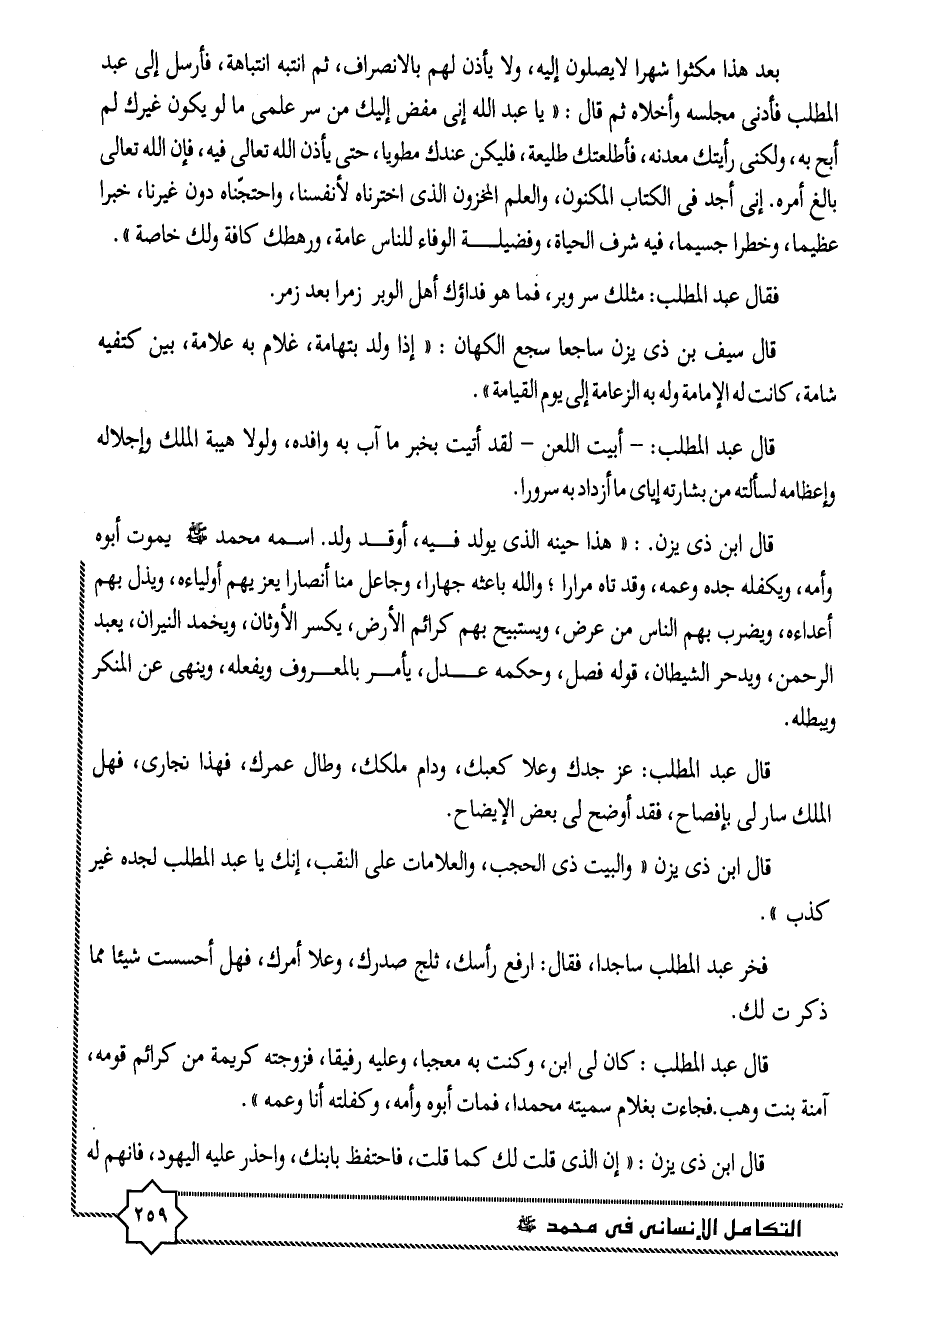 بعد هذا مكثوا شهرا لايصلون إليه، ولا يأذن لهم بالانصراف، ثم انتبه انتباهة، فأرسل إلى عبد
المطلب فأدنى مجلسه وأخلاه ثم قال : « يا عبد الله إنى مفض إليك من سر علمى ما لو يكون غيرك لم
أبح به، ولكنى رأيتك معدنه، فأطلعتك طليعة، فليكن عندك مطويا، حتى يأذن الله تعالى فيه، فإن الله تعالى
بالغ أمره. إنى أجد فى الكتاب المكنون، والعلم المخزون الذى اخترناه لأنفسنا، واحتجنّاه دون غيرنا، خبرا
عظيما، وخطرا جسيما، فيه شرف الحياة، وفضيلة الوفاء للناس عامة، ورهطك كافة ولك خاصة ».
فقال عبد المطلب: مثلك سر وبر، فما هو فداؤك أهل الوبر زمرا بعد زمر.
قال سيف بن ذى يزن ساجعا سجع الكهان : « إذا ولد بتهامة، غلام به علامة، بين كتفيه
شامة، كانت له الإمامة وله به الزعامة إلى يوم القيامة».
قال عبد المطلب: – أبيت اللعن – لقد أتيت بخبر ما آب به وافده، ولولا هيبة الملك وإجلاله
وإعظامه لسألته من بشارته إياى ما أزداد به سرورا.
قال ابن ذى يزن. : « هذا حينه الذى يولد فيه، أوقد ولد. اسمه محمد ﷺ يموت أبوه
وأمه، ويكفله جده وعمه، وقد تاه مرارا ؛ والله باعثه جهارا، وجاعل منا أنصارا يعز بهم أولياءه، ويذل بهم
أعداءه، ويضرب بهم الناس من عرض، ويستبيح بهم كرائم الأرض، يكسر الأوثان، ويخمد النيران، يعبد
الرحمن، ويدحر الشيطان، قوله فصل، وحكمه عدل، يأمر بالمعروف ويفعله، وينهى عن المنكر
ويبطله.
قال عبد المطلب: عز جدك وعلا كعبك، ودام ملكك، وطال عمرك، فهذا نجارى، فهل
الملك سار لى بإفصاح، فقد أوضح لى بعض الإيضاح.
قال ابن ذى يزن « والبيت ذى الحجب، والعلامات على النقب، إنك يا عبد المطلب لجده غير
كذب ».
فخر عبد المطلب ساجدا، فقال: ارفع رأسك، ثلج صدرك، وعلا أمرك، فهل أحسست شيئا مما
ذكر ت لك.
قال عبد المطلب : كان لى ابن، وكنت به معجبا، وعليه رفيقا، فزوجته كريمة من كرائم قومه،
آمنة بنت وهب.فجاءت بغلام سميته محمدا، فمات أبوه وأمه، وكفلته أنا وعمه ».
قال ابن ذى يزن : « إن الذى قلت لك كما قلت، فاحتفظ بابنك، واحذر عليه اليهود، فانهم له
التكامل الإنسانى فى محمد ﷺ
٢٥٩